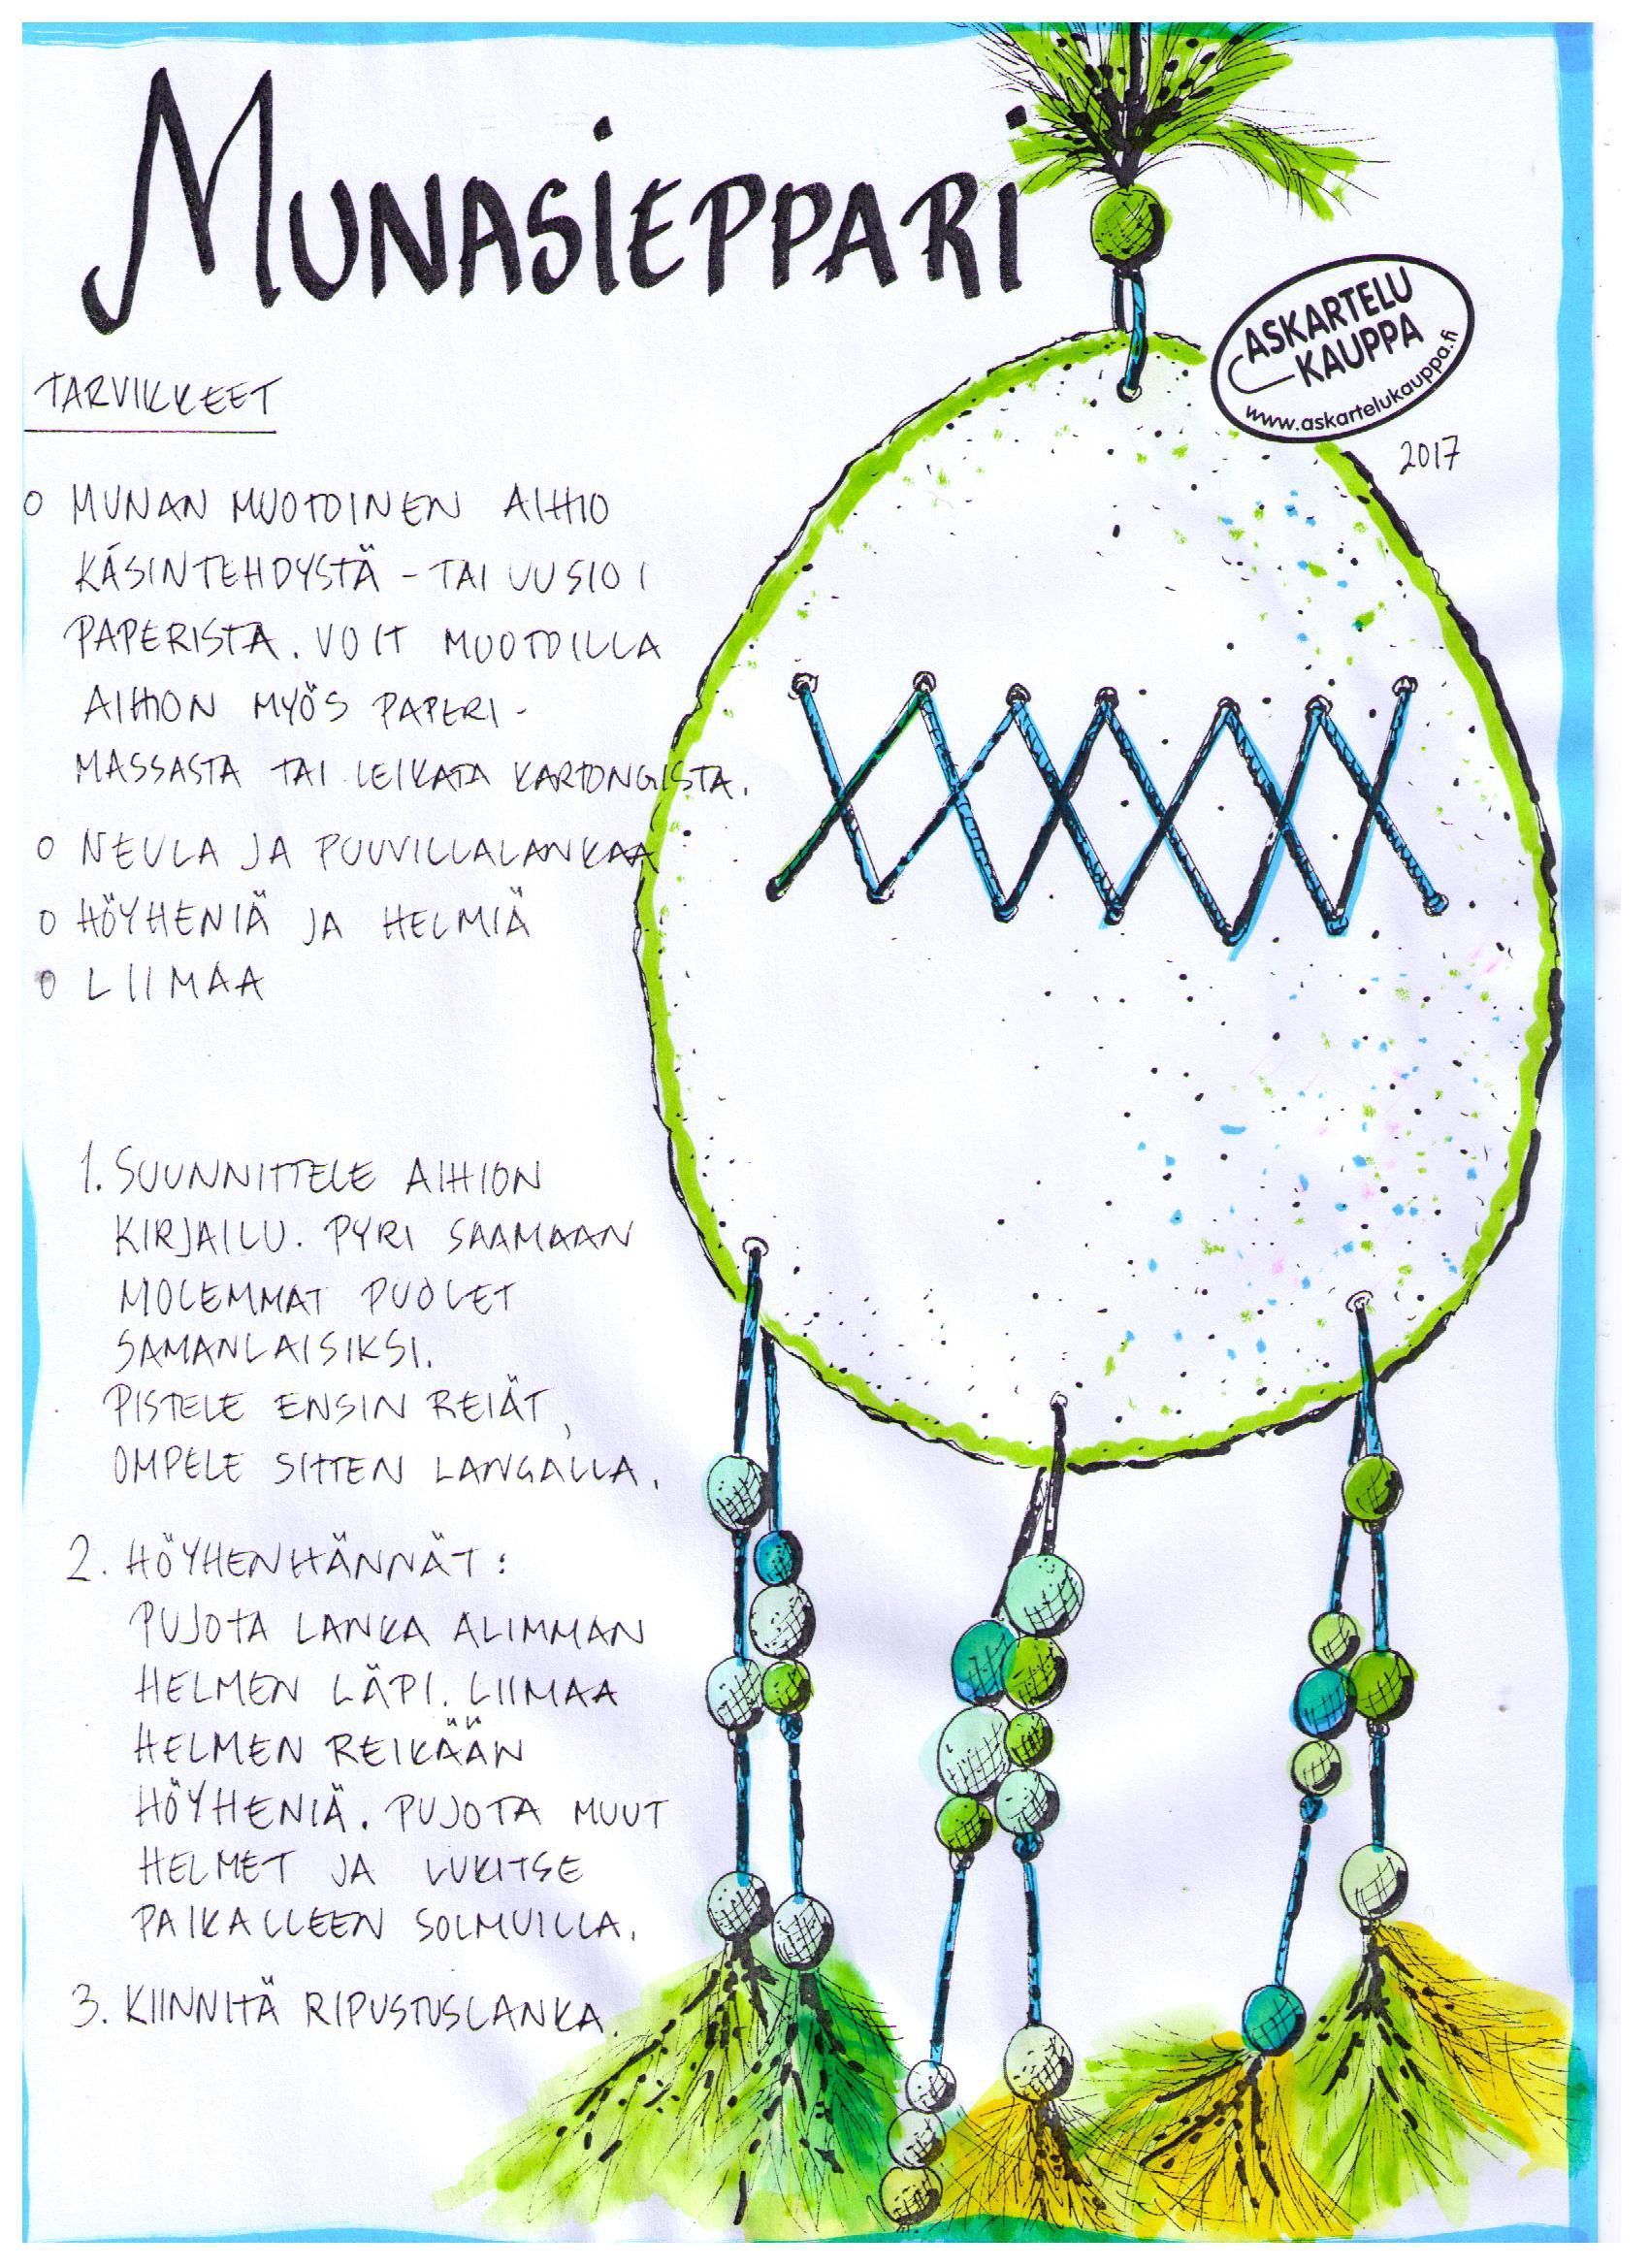 MUNASIEPPARI
ASKARTELU
KAUPPA
www.askartelukauppa.fi
2017
TARVIKKEET
o MUNAN MUOTOINEN AIHIO
KÄSINTEHDYSTÄ - TAI UUSIO
PAPERISTA. VOIT MUOTOILLA
AIHION MYÖS PAPERI-
MASSASTA TAI LEIKATA KARTONGISTA.
o NEULA JA PUUVILLALANKAA
o HÖYHENIÄ JA HELMIÄ
o LIIMAA
1. SUUNNITTELE AIHION
KIRJAILU. PYRI SAAMAAN
MOLEMMAT PUOLET
SAMANLAISIKSI.
PISTELE ENSIN REIÄT,
OMPELE SITTEN LANGALLA.
2. HÖYHENHÄNNÄT:
PUJOTA LANKA ALIMMAN
HELMEN LÄPI. LIIMAA
HELMEN REIKÄÄN
HÖYHENIÄ. PUJOTA MUUT
HELMET JA LUKITSE
PAIKALLEEN SOLMUILLA.
3. KIINNITÄ RIPUSTUSLANKA.